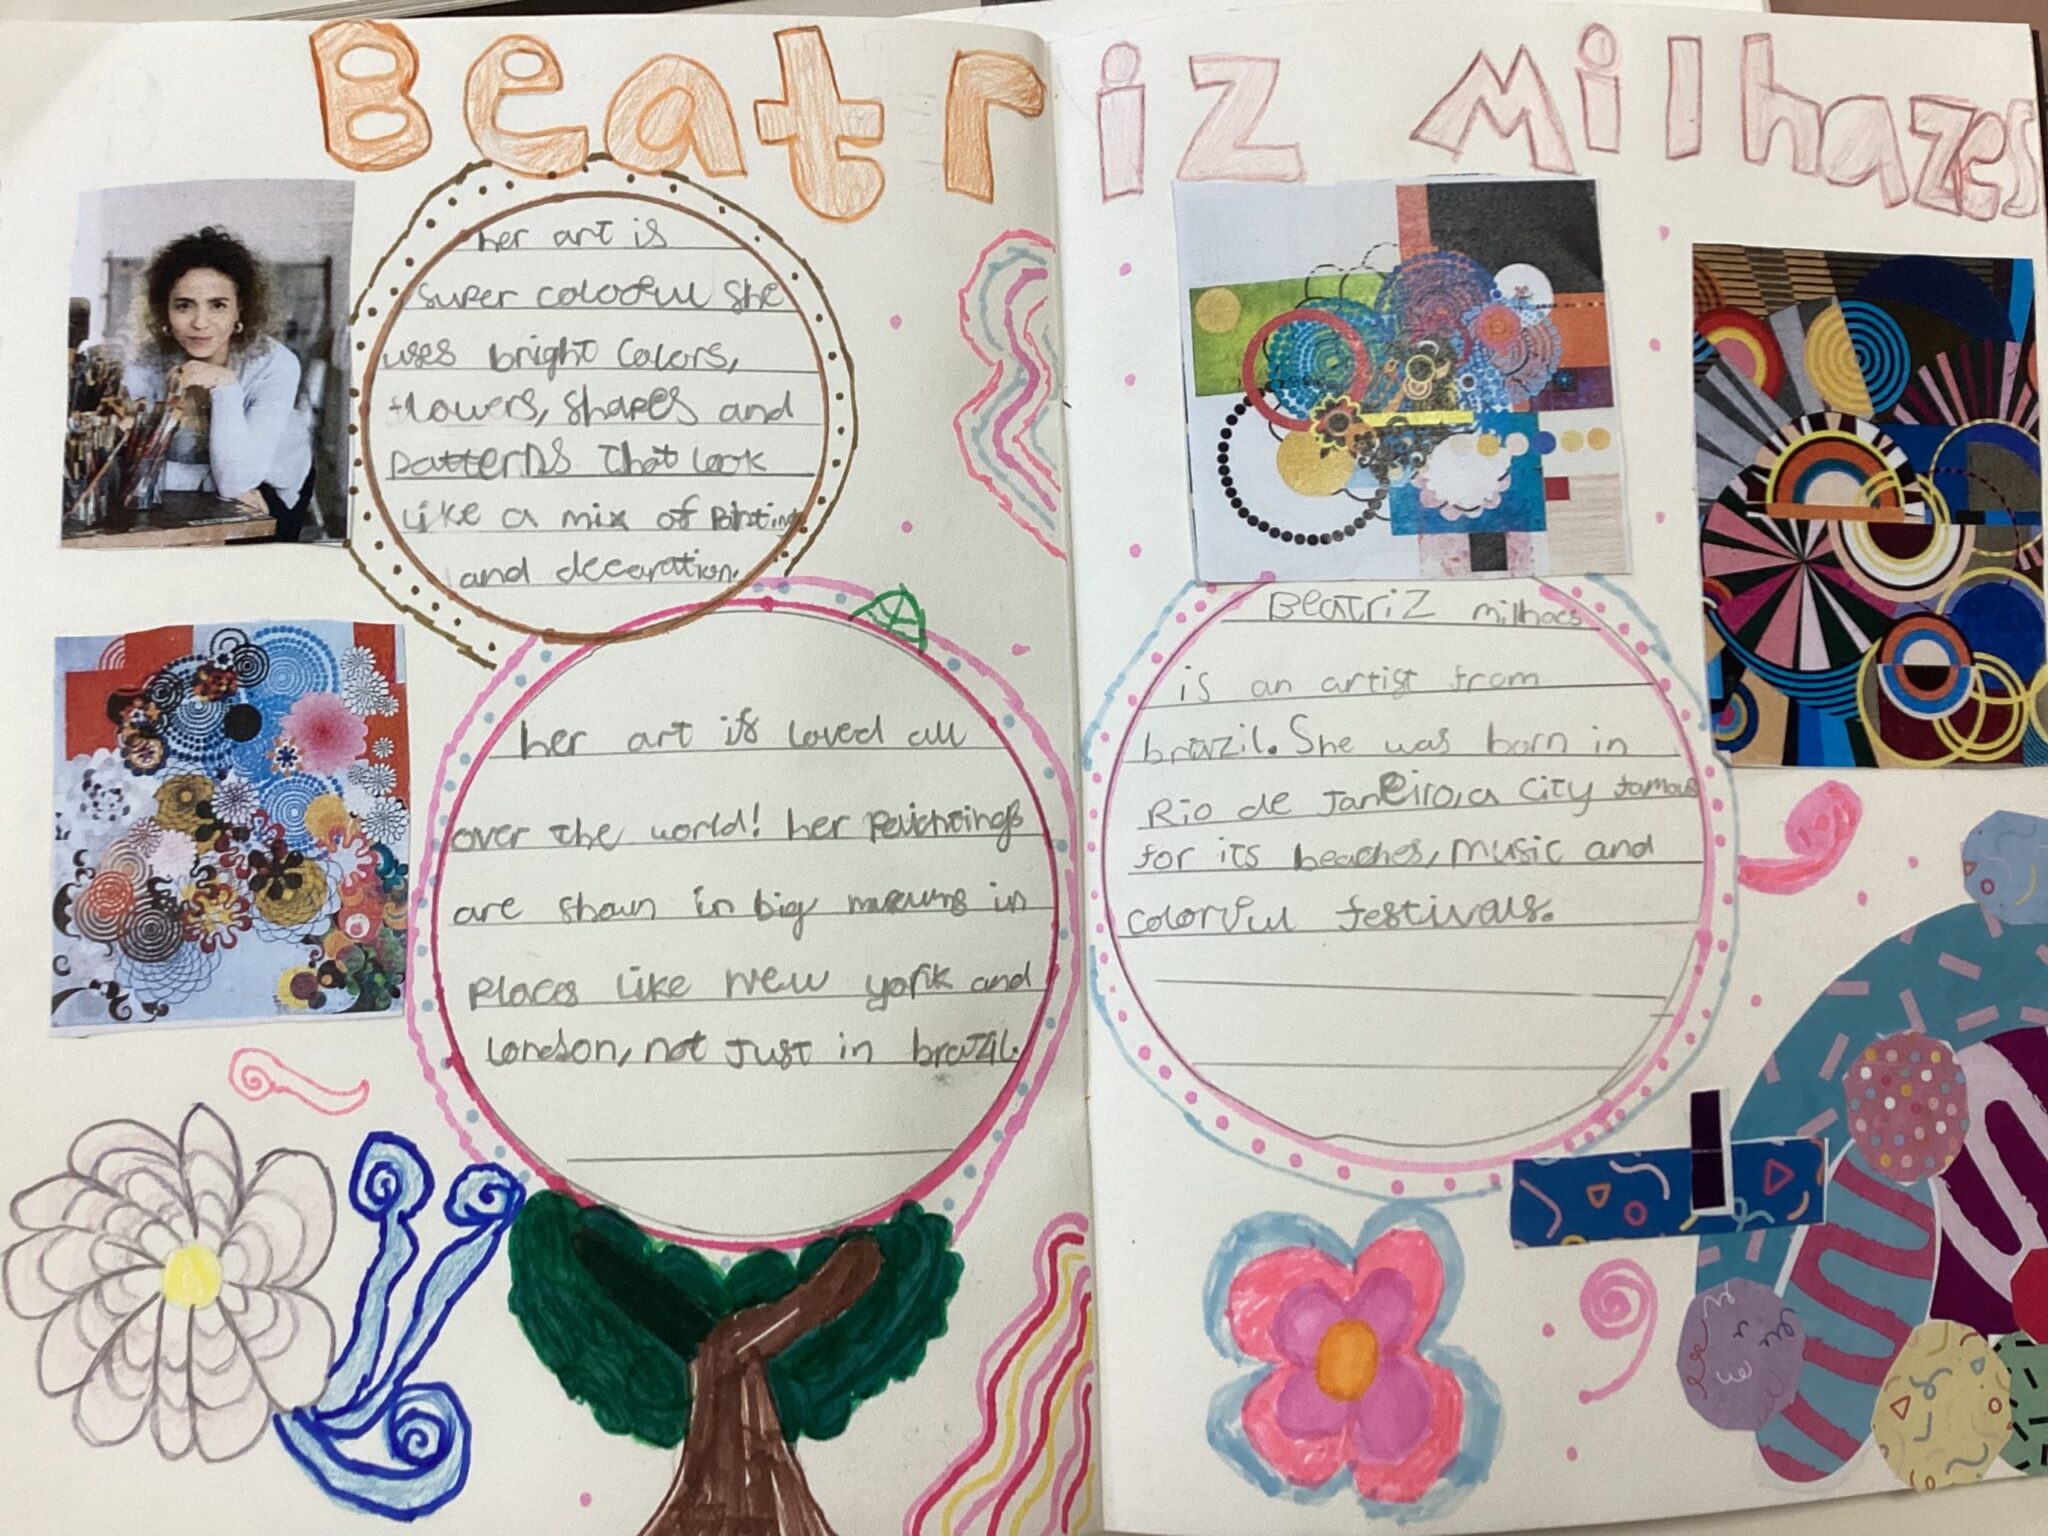 Beatriz Milhazes
her art is
super coloful she
uses bright colors,
flowers, shapes and
patterns that look
like a mix of Painting
and decoration.
her art is loved all
over the world! her paintings
are shown in big museums in
places like New york and
london, not just in brazil.
Beatriz milhaes
is an artist from
brazil. She was born in
Rio de Janeiro, a city famous
for its beaches, music and
colorful festivals.